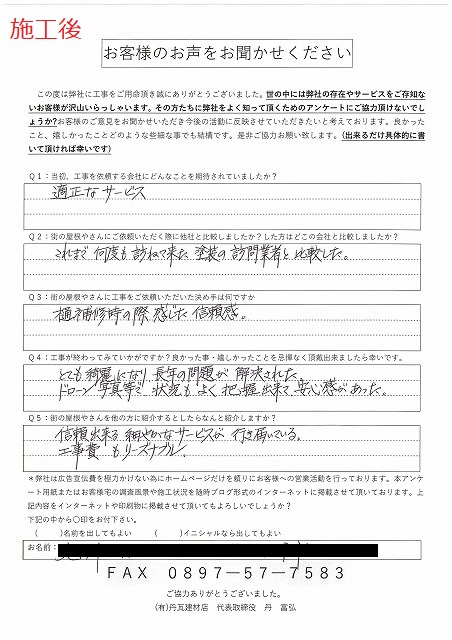 施工後
お客様のお声をお聞かせください
この度は弊社に工事をご用命頂き誠にありがとうございました。世の中には弊社の存在やサービスをご存知な
いお客様が沢山いらっしゃいます。その方たちに弊社をよく知って頂くためのアンケートにご協力頂けないでし
ょうか?お客様のご意見をお聞かせいただき今後の活動に反映させていただきたいと考えております。良かった
こと、嬉しかったことどのような些細な事でも結構です。是非ご協力お願い致します。(出来るだけ具体的に書
いて頂ければ幸いです)
Q1:当初、工事を依頼する会社にどんなことを期待されていましたか?
適正なサービス
Q2:街の屋根やさんにご依頼いただく際に他社と比較しましたか?した方はどこの会社と比較しましたか?
これまで何度も訪ねて来た塗装の訪問業者と比較した。
Q3:街の屋根やさんに工事をご依頼いただいた決め手は何ですか
樋補修時の際感じた信頼感。
Q4:工事が終わってみていかがですか?良かった事・嬉しかったことを忌憚なく頂戴出来ましたら幸いです。
とても綺麗になり、長年の問題が解決された。
ドローン写真等で状況もよく把握出来て安心感があった。
Q5:街の屋根やさんを他の方に紹介するとしたらなんと紹介しますか?
信頼出来る細やかなサービスが行き届いている。
工事費もリーズナブル。
*弊社は広告宣伝費を極力かけない為にホームページだけを頼りにお客様への営業活動を行っております。本アンケ
ート用紙またはお客様宅の調査風景や施工状況を随時ブログ形式のインターネットに掲載させて頂いております。上
記内容をインターネットや印刷物に掲載させて頂いてもよろしいでしょうか?
下記の中から〇印をお付下さい。
( )名前を出してもよい ( )イニシャルなら出してもよい
お名前:
FAX 0897-57-7583
ご協力ありがとうございました。
(有)丹瓦建材店 代表取締役 丹 富弘